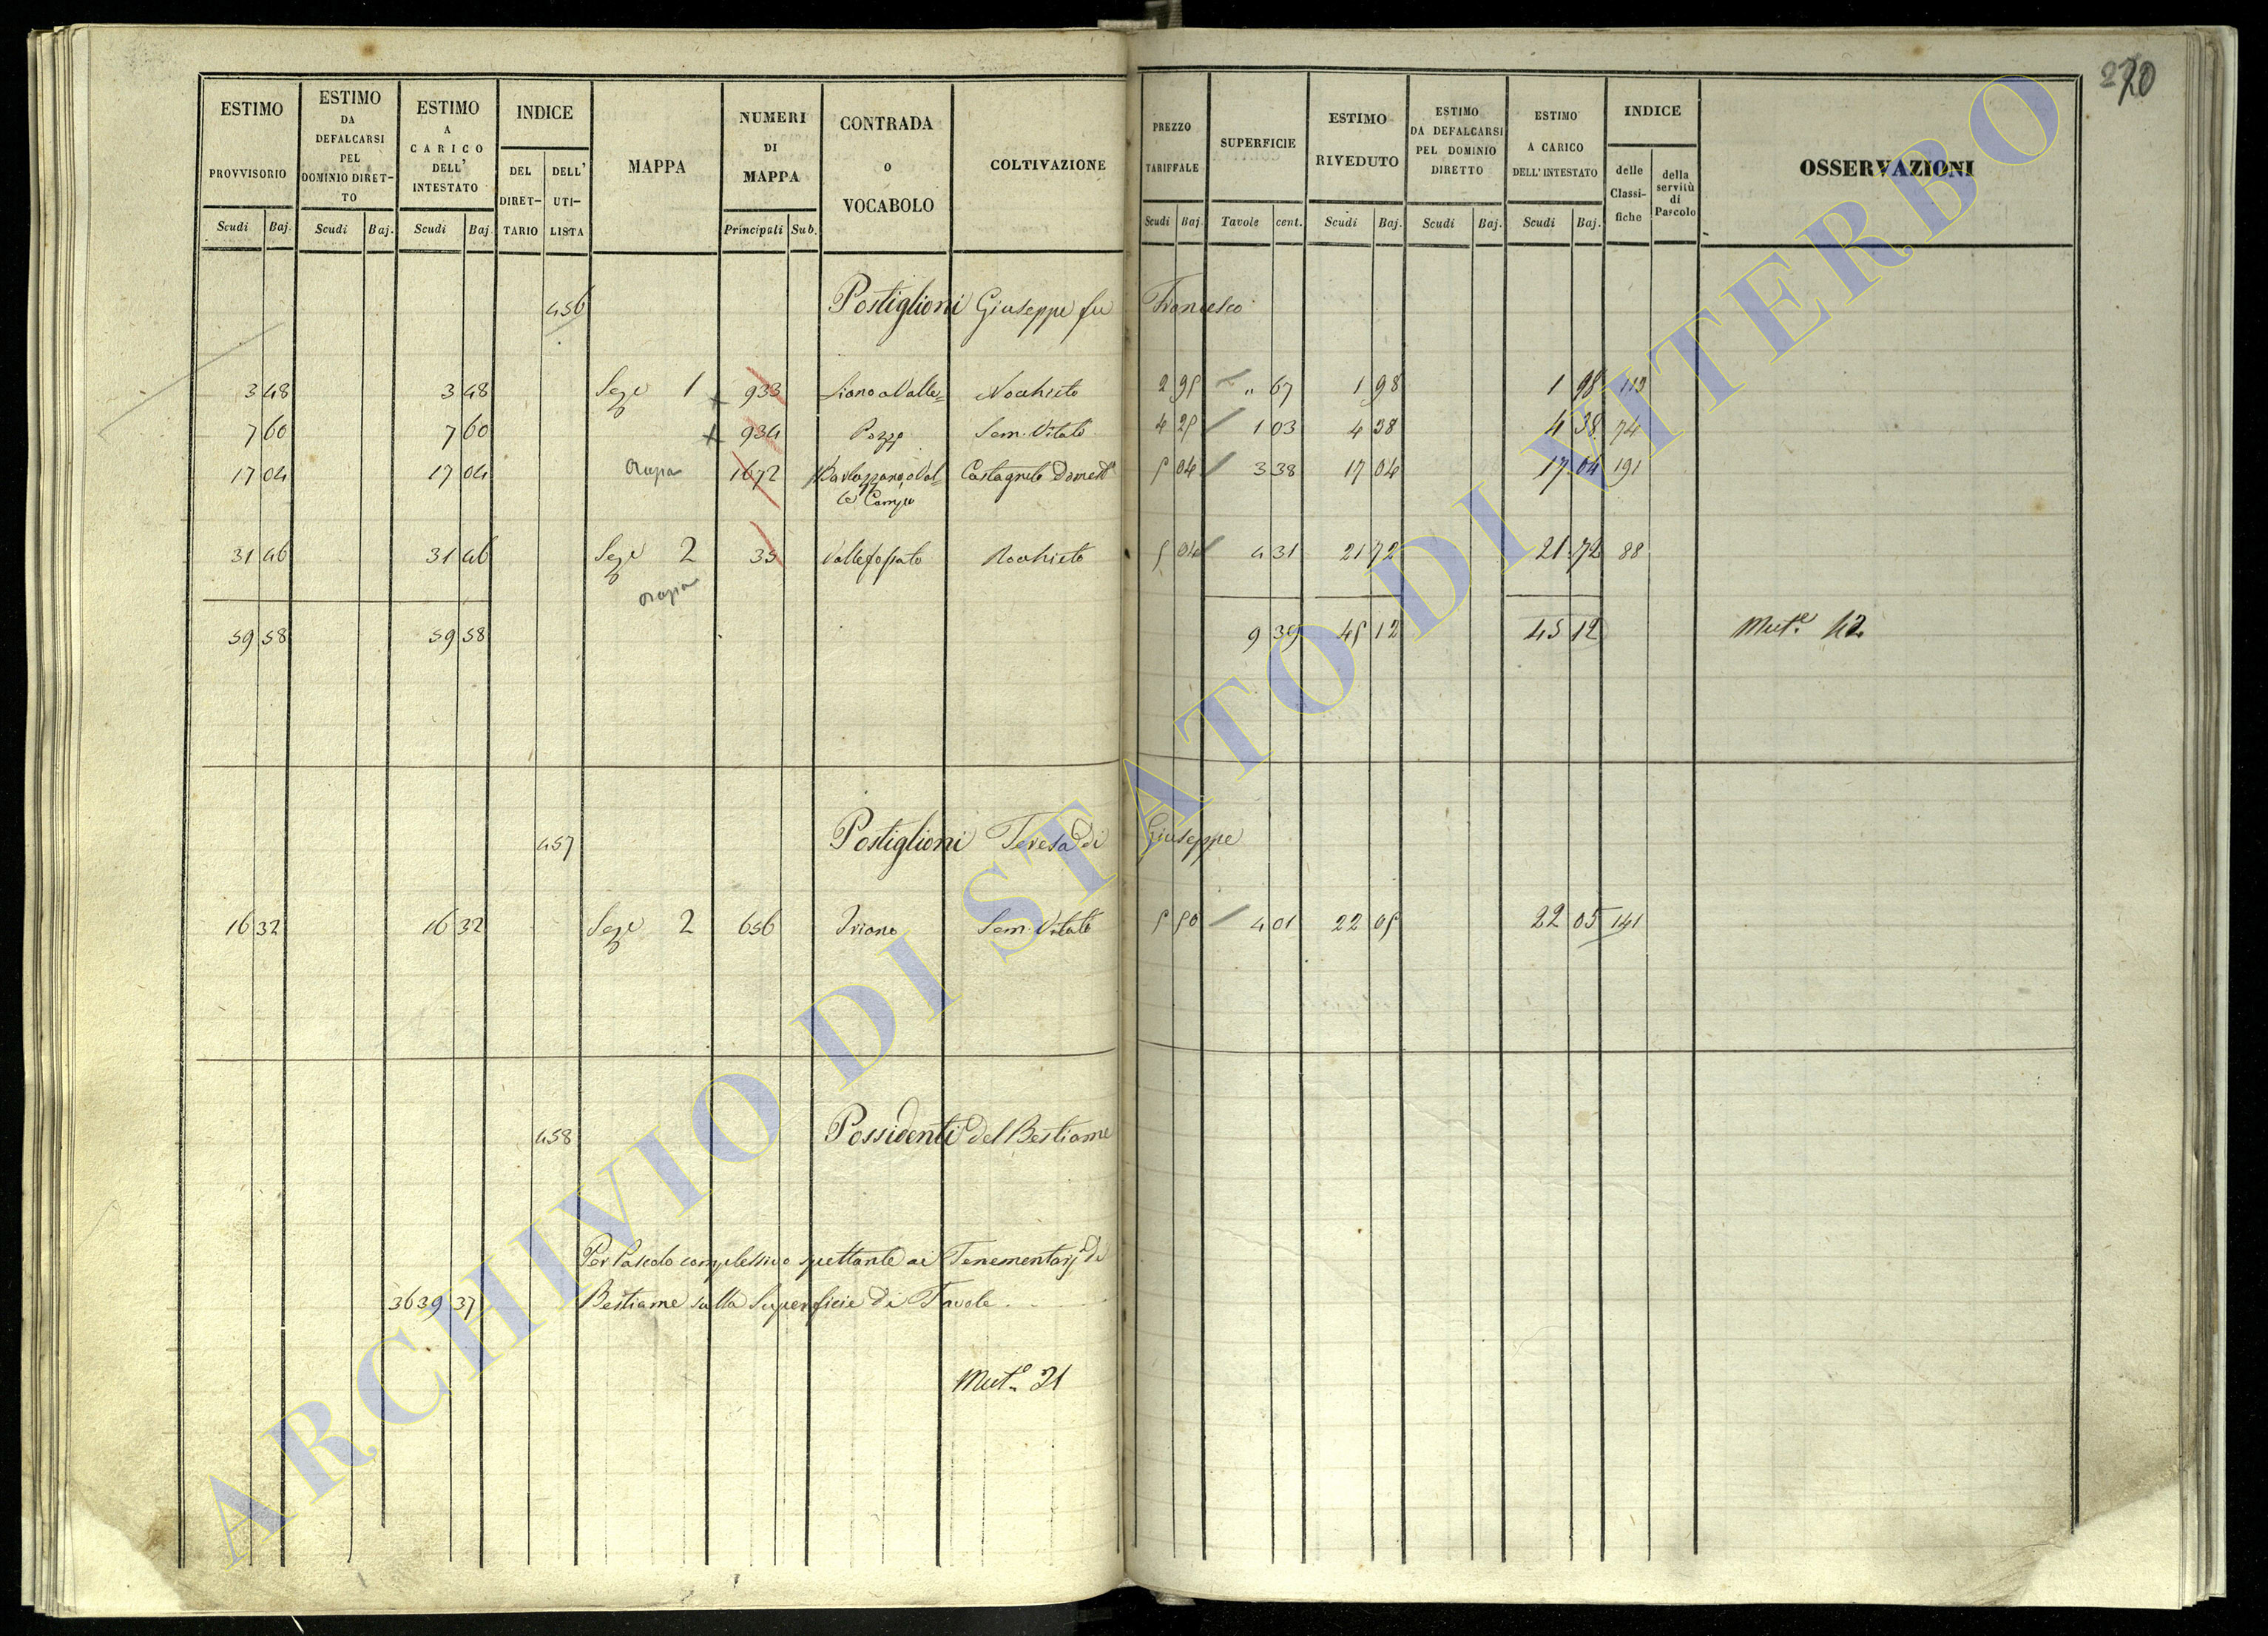 270
ESTIMO PROVVISORIO Scudi Baj.
ESTIMO DA DEFALCARSI PEL DOMINIO DIRETTO Scudi Baj.
ESTIMO A CARICO DELL' INTESTATO Scudi Baj.
INDICE DEL DIRETTARIO DELL' UTILISTA
MAPPA
NUMERI DI MAPPA Principali Sub.
CONTRADA o VOCABOLO
COLTIVAZIONE
PREZZO TARIFFALE Scudi Baj.
SUPERFICIE Tavole cent.
ESTIMO RIVEDUTO Scudi Baj.
ESTIMO DA DEFALCARSI PEL DOMINIO DIRETTO Scudi Baj.
ESTIMO A CARICO DELL' INTESTATO Scudi Baj.
INDICE delle Classifiche della servitù di Pascolo
OSSERVAZIONI
456 Postiglioni Giuseppe fu Francesco
3 48 3 48 Sez. 1 933 Nochieto 2 95 „ 67 1 98 1 98 113
7 60 7 60 934 Pozzo Sem. Vitato 4 25 1 03 4 38 4 38 74
17 04 17 04 1672 Castagneto Domest. 5 04 3 38 17 04 17 04 191
le Campo
31 46 31 46 Sez. 2 35 Vallefossato Nochieto 5 04 4 31 21 72 21 72 88
59 58 59 58 9 39 45 12 45 12 Mut.e 42
457 Postiglioni Teresa di Giuseppe
16 32 16 32 Sez. 2 656 Sem. Vitato 5 50 4 01 22 05 22 05 141
458 Possidenti del Bestiame
Per Pascolo complessivo spettante ai Tenementarj di
3639 37 Bestiame sulla Superficie di Tavole
Mut.e 21
ARCHIVIO DI STATO DI VITERBO